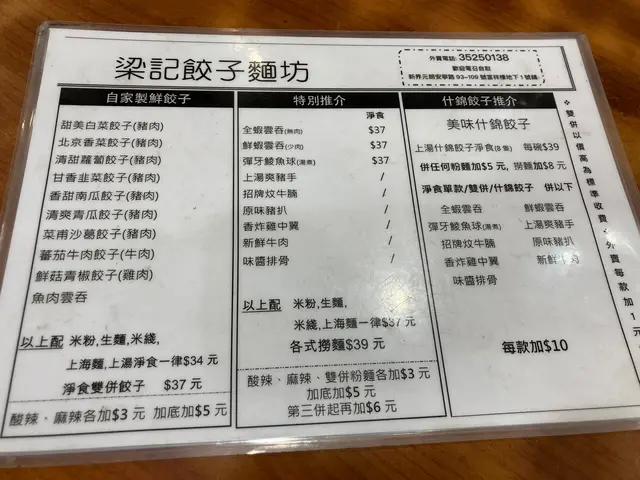 梁記餃子麵坊
外賣電話: 35250138
歡迎電召自取
新界元朗安寧路 93-109 號富祥樓地下 1 號舖
自家製鮮餃子
甜美白菜餃子(豬肉)
北京香菜餃子(豬肉)
清甜蘿蔔餃子(豬肉)
甘香韭菜餃子(豬肉)
香甜南瓜餃子(豬肉)
清爽青瓜餃子(豬肉)
菜甫沙葛餃子(豬肉)
蕃茄牛肉餃子(牛肉)
鮮菇青椒餃子(雞肉)
魚肉雲吞
以上配 米粉,生麵,米綫,
上海麵,上湯淨食一律$34 元
淨食雙併餃子 $37 元
酸辣、麻辣各加$3 元 加底加$5 元
特別推介
淨食
全蝦雲吞(無肉) $37
鮮蝦雲吞(少肉) $37
彈牙鯪魚球(湯煮) $37
上湯爽豬手 /
招牌炆牛腩 /
原味豬扒 /
香炸雞中翼 /
新鮮牛肉 /
味醬排骨 /
以上配 米粉,生麵,
米綫,上海麵一律$37 元
各式撈麵$39 元
酸辣、麻辣、雙併粉麵各加$3 元
加底加$5 元
第三併起再加$6 元
什錦餃子推介
美味什錦餃子
上湯什錦餃子淨食(8 隻) 每碗$39
併任何粉麵加$5 元, 撈麵加$8 元
淨食單款/雙併/什錦餃子 併以下
全蝦雲吞 鮮蝦雲吞
彈牙鯪魚球(湯煮) 上湯爽豬手
招牌炆牛腩 原味豬扒
香炸雞中翼 新鮮牛肉
味醬排骨
每款加$10
雙併以價高為標準收費
外賣每款加 1 元